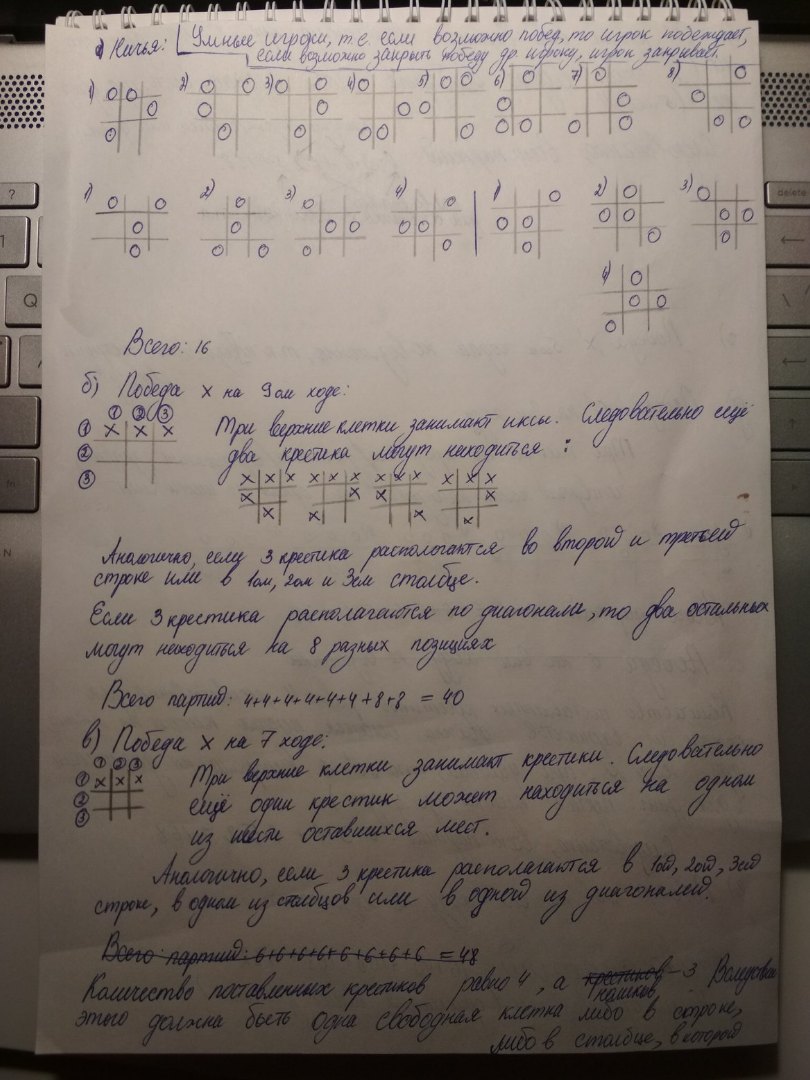 а) Ничья: Умные игроки, т.е. если возможно побед, то игрок побеждает,
если возможно закрыть победу др. игроку, игрок закрывает.
1) 2) 3) 4) 5) 6) 7) 8)
1) 2) 3) 4) 1) 2) 3)
4)
Всего: 16
б) Победа х на 9ом ходе:
1 2 3
1 х х х
2
3
Три верхние клетки занимант иксы. Следовательно ещё
два крестика могут находиться:
Аналогично, если 3 крестика распологаются во второй и третьей
строке или в 1ом, 2ом и 3ем столбце.
Если 3 крестика располагаются по диагонали, то два остальных
могут находиться на 8 разных позициях
Всего партий: 4+4+4+4+4+4+8+8 = 40
в) Победа х на 7 ходе:
1 2 3
1 х х х
2
3
Три верхние клетки занимант крестики. Следовательно
ещё один крестик может находиться на одном
из шести оставшихся мест.
Аналогично, если 3 крестика распологаются в 1ой, 2ой, 3ей
строке, в одном из столбцов или в одной из диагоналей.
Всего партий: 6+6+6+6+6+6+6+6 = 48
Количество поставленных крестиков равно 4, а крестиков ноликов - 3
этого должна быть одна свободная клетка либо в строке,
либо в столбце, в которой
delete
?
Q
N